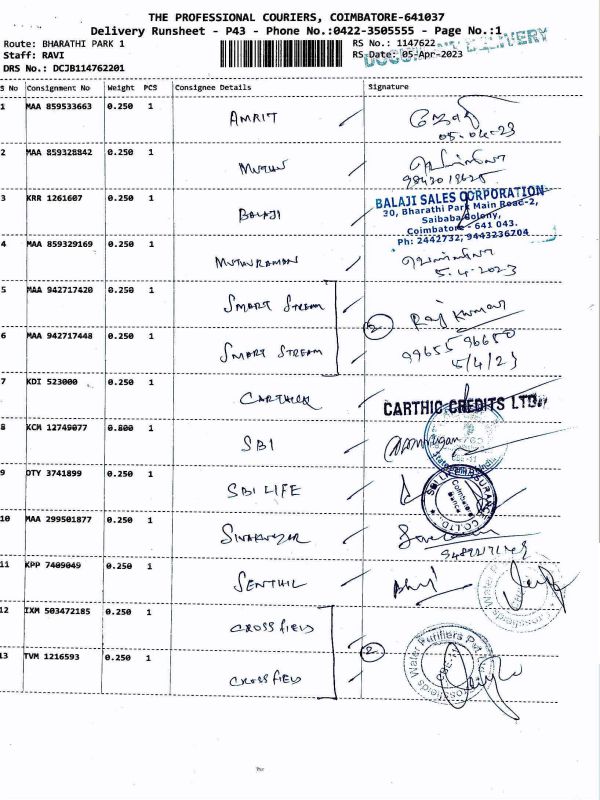 THE PROFESSIONAL COURIERS, COIMBATORE-641037
Delivery Runsheet - P43 - Phone No.:0422-3505555 - Page No.:1
Route: BHARATHI PARK 1
RS No.: 1147622
Staff: RAVI
RS Date: 05-Apr-2023
DRS No.: DCJB114762201
DOCUMENT DELIVERY
S No Consignment No Weight PCS Consignee Details Signature
1 MAA 859533663 0.250 1 AMRIT
05-04-23
2 MAA 859328842 0.250 1
3 KRR 1261607 0.250 1 BALAJI
BALAJI SALES CORPORATION
20, Bharathi Park Main Road-2,
Saibaba Colony,
Coimbatore - 641 043.
Ph: 2442732, 9443236704
4 MAA 859329169 0.250 1 MUTHURAMAN
5.4.2023
5 MAA 942717420 0.250 1 SMART STREAM
2 Raj Kumar
6 MAA 942717448 0.250 1 SMART STREAM
99655 96650
5/4/23
7 KDI 523000 0.250 1 CARTHICK
CARTHIC CREDITS LTD.
8 KCM 12749077 0.800 1 SBI
9 OTY 3741899 0.250 1 SBI LIFE
10 MAA 299501877 0.250 1 SIVAKUMAR
11 KPP 7409049 0.250 1 SENTHIL
12 IXM 503472185 0.250 1 CROSSFIELD
13 TVM 1216593 0.250 1 CROSSFIELD
2
Crossfields Water Purifiers Pvt.
CBE-11